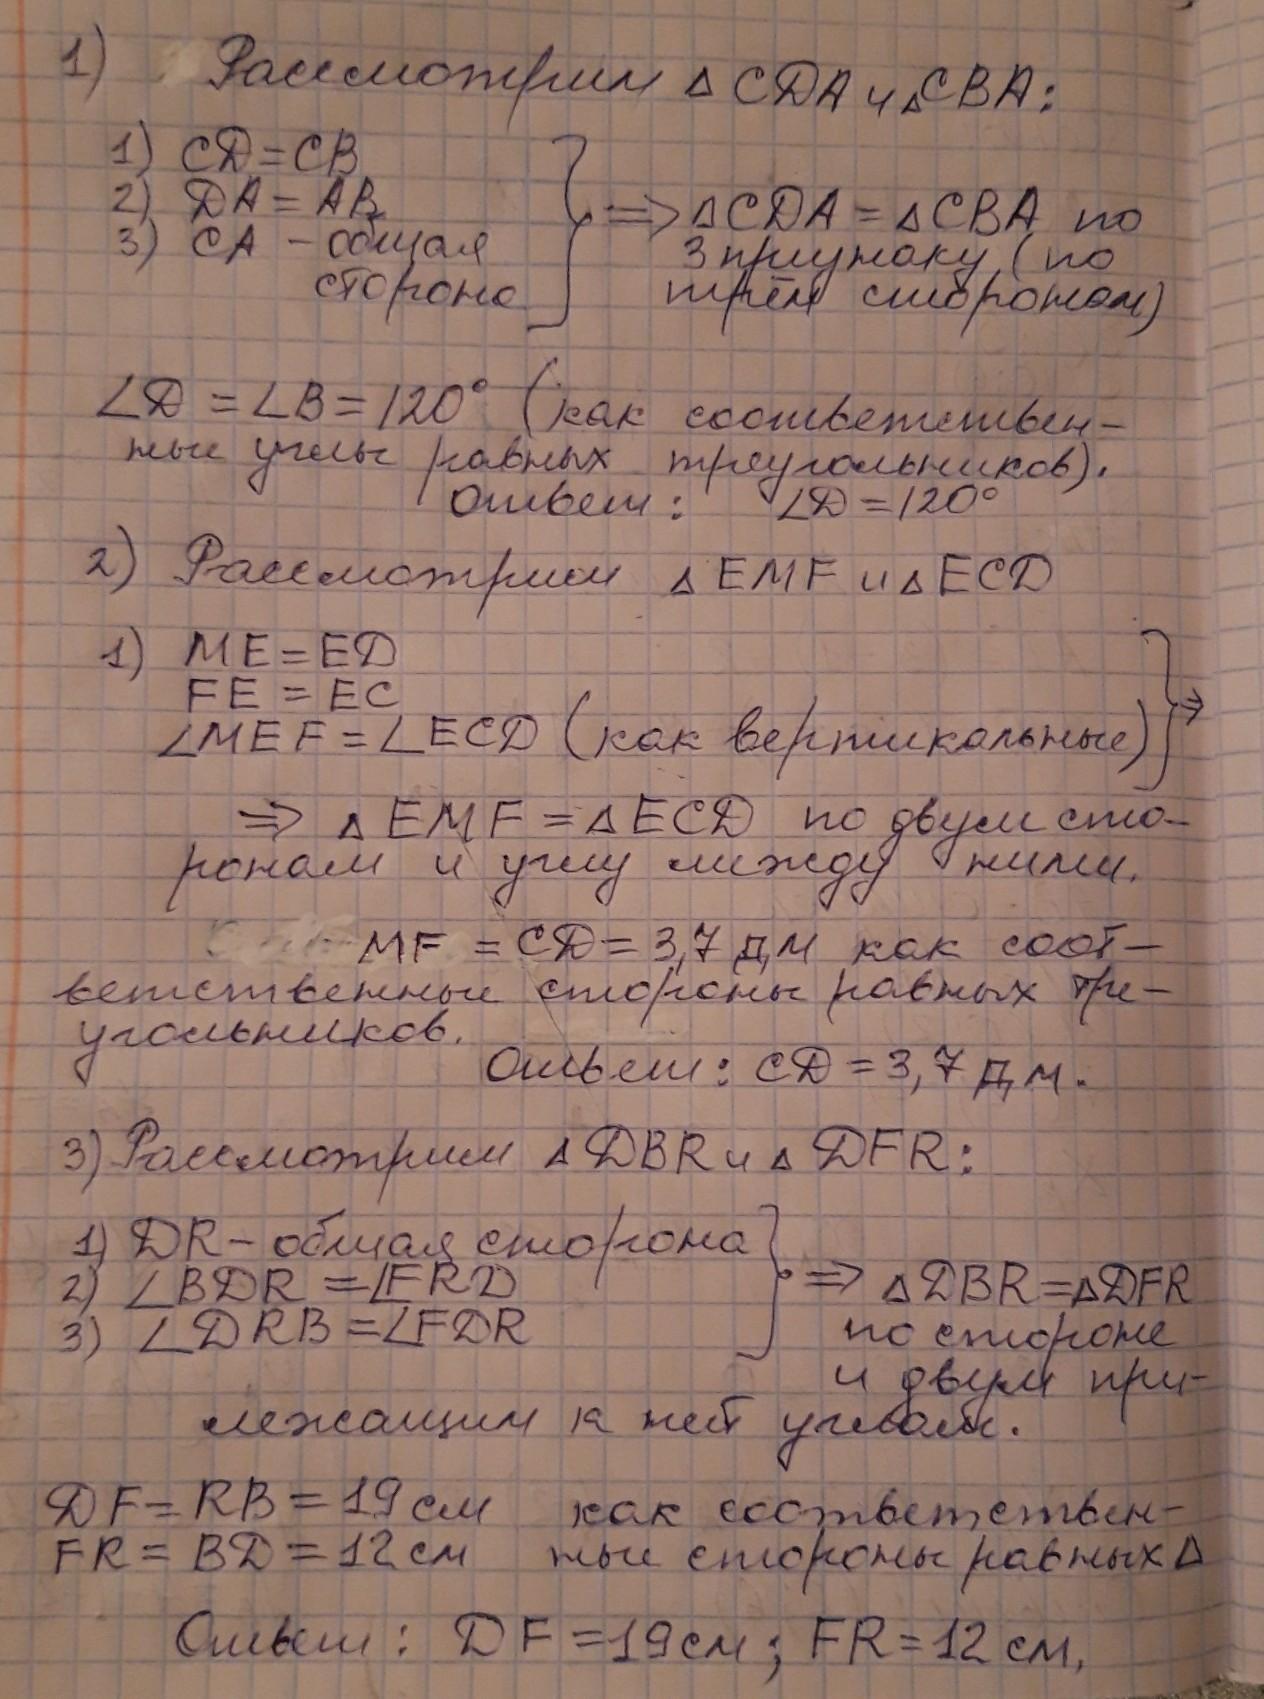 1) Рассмотрим △ CDA и △ CBA:
1) CD = CB
2) DA = AB
3) CA - общая
сторона
⟹ △CDA = △CBA по
3 признаку (по
трём сторонам)
∠D = ∠B = 120° (как соответствен-
ные углы равных треугольников).
Ответ: ∠D = 120°
2) Рассмотрим △ EMF и △ ECD
1) ME = ED
FE = EC
∠MEF = ∠ECD (как вертикальные) ⇒
⟹ △ EMF = △ ECD по двум сто-
ронам и углу между ними.
MF = CD = 3,7 дм как соот-
ветственные стороны равных тре-
угольников.
Ответ: CD = 3,7 дм.
3) Рассмотрим △ DBR и △ DFR:
1) DR - общая сторона
2) ∠BDR = ∠FRD
3) ∠DRB = ∠FDR
⟹ △DBR = △DFR
по стороне
и двум при-
лежащим к ней углам.
DF = RB = 19 см как соответствен-
FR = BD = 12 см ные стороны равных △
Ответ: DF = 19 см; FR = 12 см.